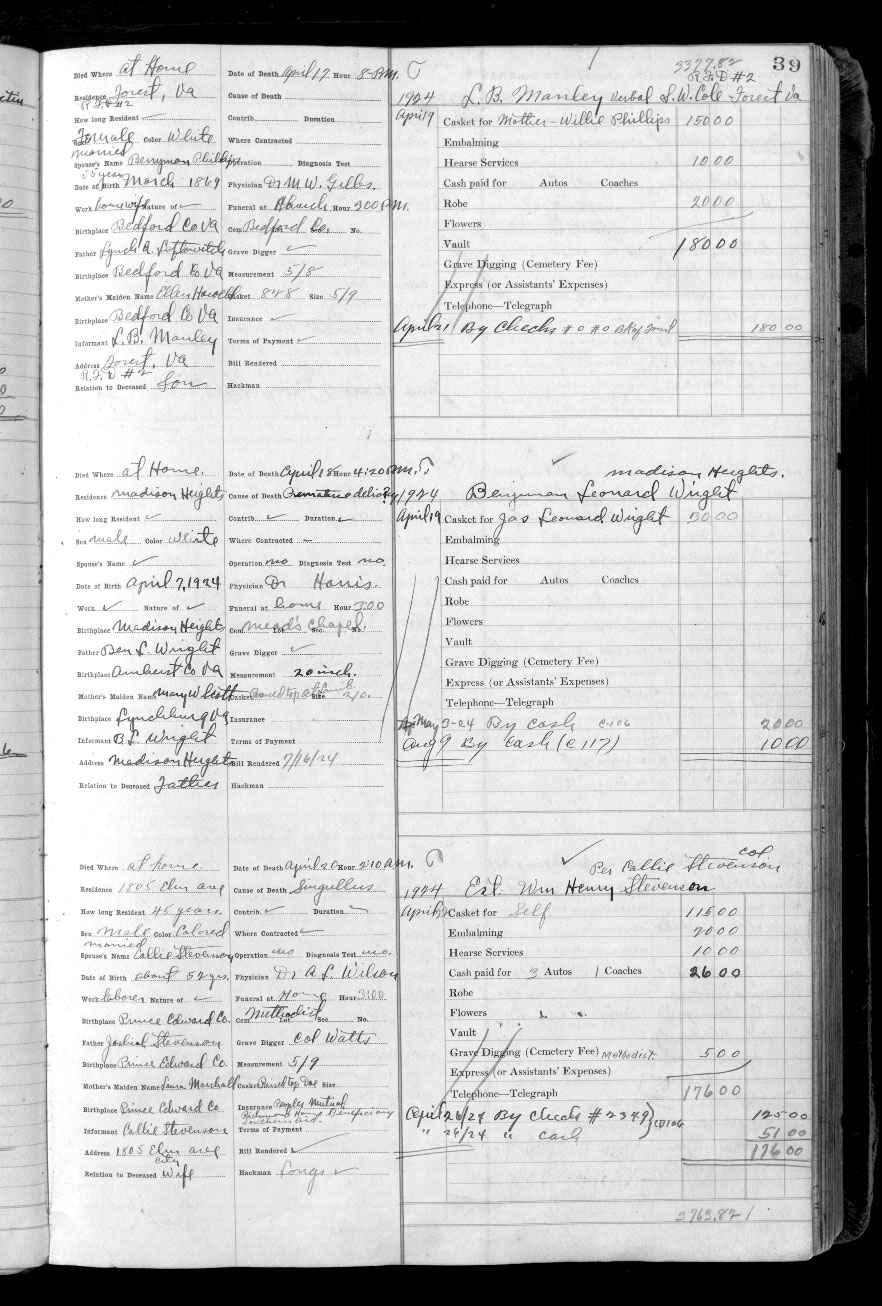 39
3377.82
R.F.D #2
Died Where at Home
Date of Death April 17 Hour 8-P.M.
1924 L. B. Manley Verbal S. W. Cole Forest Va
Residence Forest, Va
R.F.D #2
Cause of Death
April 19 Casket for Mother - Willie Phillips 150 00
How long Resident ✓
Contrib. Duration
Embalming
Sex Female Color White
Where Contracted
Hearse Services 10 00
married
Spouse's Name Berryman Phillips
Operation Diagnosis Test
Cash paid for Autos Coaches
55 years
Date of Birth March 1869
Physician Dr M. W. Gills.
Robe 20 00
Work housewife Nature of ✓
Funeral at Church Hour 3 00 P.M.
Flowers
Birthplace Bedford Co Va
Cem Bedford Co. Sec. No.
Vault 180 00
Father Lynch A.
Grave Digger ✓
Grave Digging (Cemetery Fee)
Birthplace Bedford Co Va
Measurement 5/8
Express (or Assistants' Expenses)
Mother's Maiden Name Ellen Howell
Casket 848 Size 5/9
Telephone—Telegraph
Birthplace Bedford Co Va
Insurance ✓
April 21 By Checks #0 #0 Bk of Forest 180 00
Informant L. B. Manley
Terms of Payment ✓
Address Forest, Va
R.F.D #2
Bill Rendered
Relation to Deceased Son
Hackman
Died Where at Home.
Date of Death April 18 Hour 4:20 P.M.
Madison Heights.
Residence Madison Heights
Cause of Death Premature delivery
1924 Benjman Leonard Wright
How long Resident ✓
Contrib. ✓ Duration ✓
April 19 Casket for Jas Leonard Wright 30 00
Sex male Color White
Where Contracted
Embalming
Spouse's Name ✓
Operation no Diagnosis Test no.
Hearse Services
Date of Birth April 7, 1924
Physician Dr Harris.
Cash paid for Autos Coaches
Work ✓ Nature of ✓
Funeral at home Hour 3:00
Robe
Birthplace Madison Height
Cem. Mead's Chapel. Lot Sec. No.
Flowers
Father Ben L. Wright
Grave Digger ✓
Vault
Birthplace Amherst Co Va
Measurement 20 inch.
Grave Digging (Cemetery Fee)
Mother's Maiden Name Mary W Scott
Casket Raised top Size 2/0.
Express (or Assistants' Expenses)
Birthplace Lynchburg Va
Insurance
Telephone—Telegraph
Informant B. L. Wright
Terms of Payment
May 3-24 By Cash C-106 20 00
Address Madison Heights
Bill Rendered 7/16/24
Aug 9 By Cash (C 117) 10 00
Relation to Deceased Father
Hackman
Died Where at home.
Date of Death April 20 Hour 2:10 A.M.
Per Callie Stevenson col
Residence 1805 Elm ave
Cause of Death Singultus
1924 Est. Wm Henry Stevenson
How long Resident 45 years.
Contrib. ✓ Duration
April 22 Casket for Self 115 00
Sex Male Color Colored
Where Contracted ✓
Embalming 20 00
married
Spouse's Name Callie Stevenson
Operation no Diagnosis Test no.
Hearse Services 10 00
Date of Birth about 52 yrs.
Physician Dr A. L. Wilson
Cash paid for 3 Autos 1 Coaches 26 00
Work laborer Nature of ✓
Funeral at Home Hour 3:00
Robe
Birthplace Prince Edward Co.
Cem. Methodist Lot Sec. No.
Flowers
Father Joshia Stevenson
Grave Digger Col Watts
Vault
Birthplace Prince Edward Co.
Measurement 5/9
Grave Digging (Cemetery Fee) Methodist. 5 00
Mother's Maiden Name Laura Marshall
Casket Raised top Doe Size
Express (or Assistants' Expenses)
Birthplace Prince Edward Co
Insurance Peoples Mutual
Richmond Home Beneficiary
Southern Aid.
Telephone—Telegraph 176 00
Informant Callie Stevenson
Terms of Payment
April 26/24 By Check #2349 } CD106 125 00
" 26/24 " Cash 51 00
176 00
Address 1805 Elm ave
City
Bill Rendered ✓
Relation to Deceased Wife
Hackman Longs ✓
3763.82